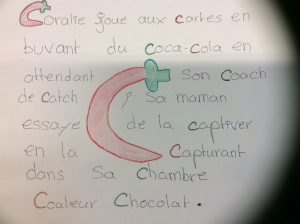 Coralie joue aux cartes en
buvant du coca-cola en
attendant son coach
de catch, sa maman
essaye de la captiver
en la Capturant
dans sa chambre
Couleur Chocolat.